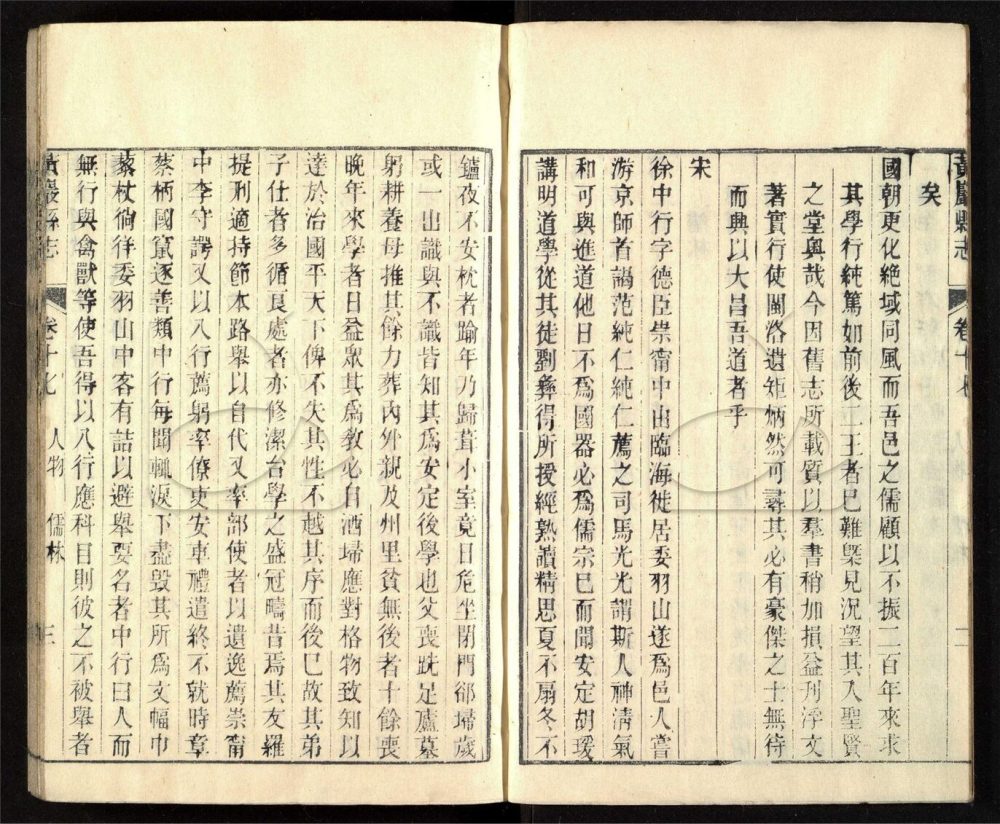 黃巖縣志 卷十七 二
矣
國朝更化絶域同風而吾邑之儒顧以不振二百年來求
其學行純篤如前後二王者已難槩見況望其入聖賢
之堂奧哉今因舊志所載質以羣書稍加損益刋浮文
著實行使閩洛遺矩炳然可尋其必有豪傑之士無待
而興以大昌吾道者乎
宋
徐中行字德臣崇甯中由臨海徙居委羽山遂爲邑人嘗
游京師首謁范純仁純仁薦之司馬光光謂斯人神淸氣
和可與進道他日不爲國器必爲儒宗已而聞安定胡瑗
講明道學從其徒劉彝得所授經熟讀精思夏不扇冬不
鑪夜不安枕者踰年乃歸葺小室竟日危坐閉門郤埽歲
或一出識與不識皆知其爲安定後學也父喪旣足廬墓
躬耕養母推其餘力葬內外親及州里貧無後者十餘喪
晚年來學者日益眾其爲敎必自洒埽應對格物致知以
達於治國平天下俾不失其性不越其序而後已故其弟
子仕者多循良處者亦修潔台學之盛冠疇昔焉其友羅
提刑適持節本路舉以自代又率部使者以遺逸薦崇甯
中李守諤又以八行薦躬率僚吏安車禮遣終不就時章
蔡柄國竄逐善類中行每聞輒淚下盡毀其所爲文幅巾
藜杖徜徉委羽山中客有詰以避舉要名者中行曰人而
無行與禽獸等使吾得以八行應科目則彼之不被舉者
黃巖縣志 卷十七 人物 儒林 三